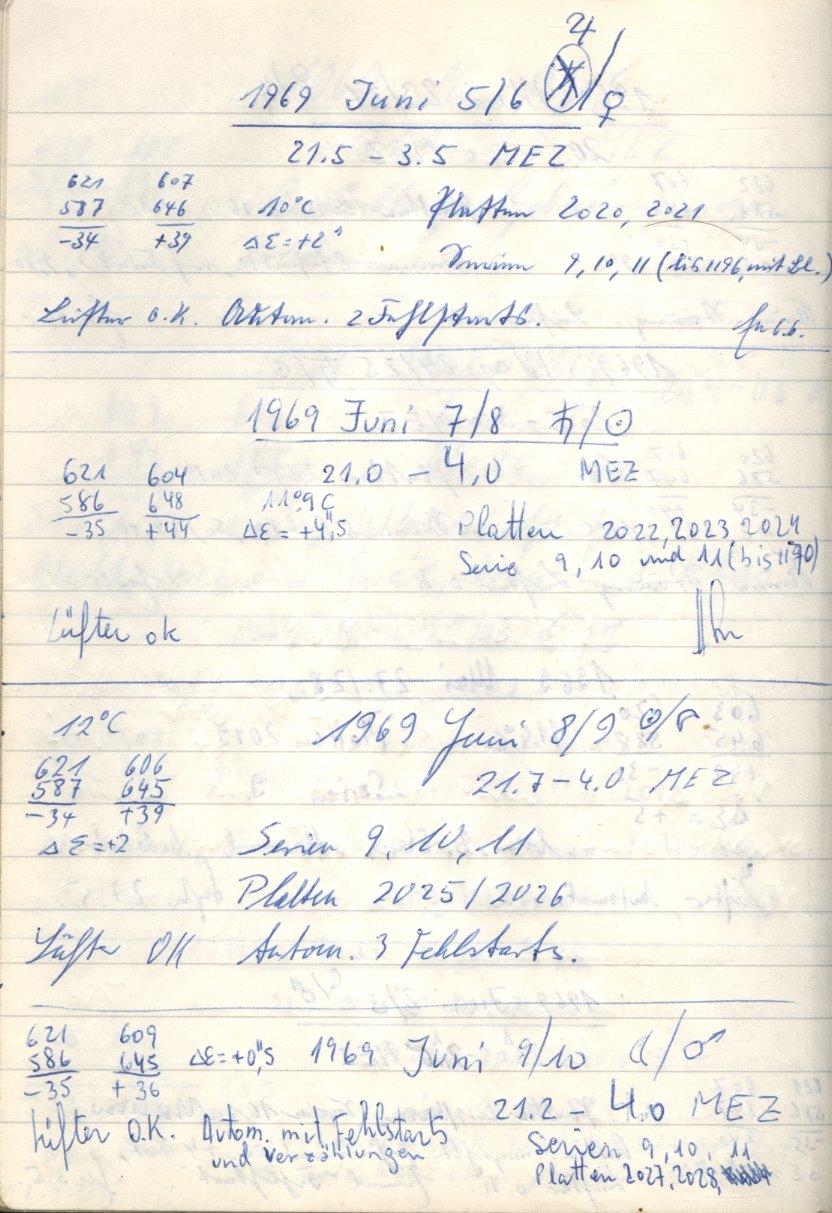 ♃
1969 Juni 5/6 /♀
21.5 – 3.5 MEZ
621 607
587 646 10°C Platten 2020, 2021
-34 +39 ΔE = +2"
9, 10, 11 (bis 1196, mit Bl.)
Lüfter o.K. Autom. 2 Fehlstarts.
1969 Juni 7/8 ♄/☉
621 604 21.0 – 4.0 MEZ
586 648 11°.9 C
-35 +44 ΔE = +4".5 Platten 2022, 2023 2024
Serie 9, 10 und 11 (bis 1170)
Lüfter ok
12°C 1969 Juni 8/9 ☉/
621 606 21.7 – 4.0 MEZ
587 645
-34 +39
ΔE = +2 Serien 9, 10, 11
Platten 2025/2026
Lüfter OK Autom. 3 Fehlstarts.
621 609
586 645 ΔE = +0".5 1969 Juni 9/10 ☾/♂
-35 +36 21.2 – 4.0 MEZ
Lüfter O.K. Autom. mit Fehlstarts
und Verzählungen Serien 9, 10, 11
Platten 2027, 2028,